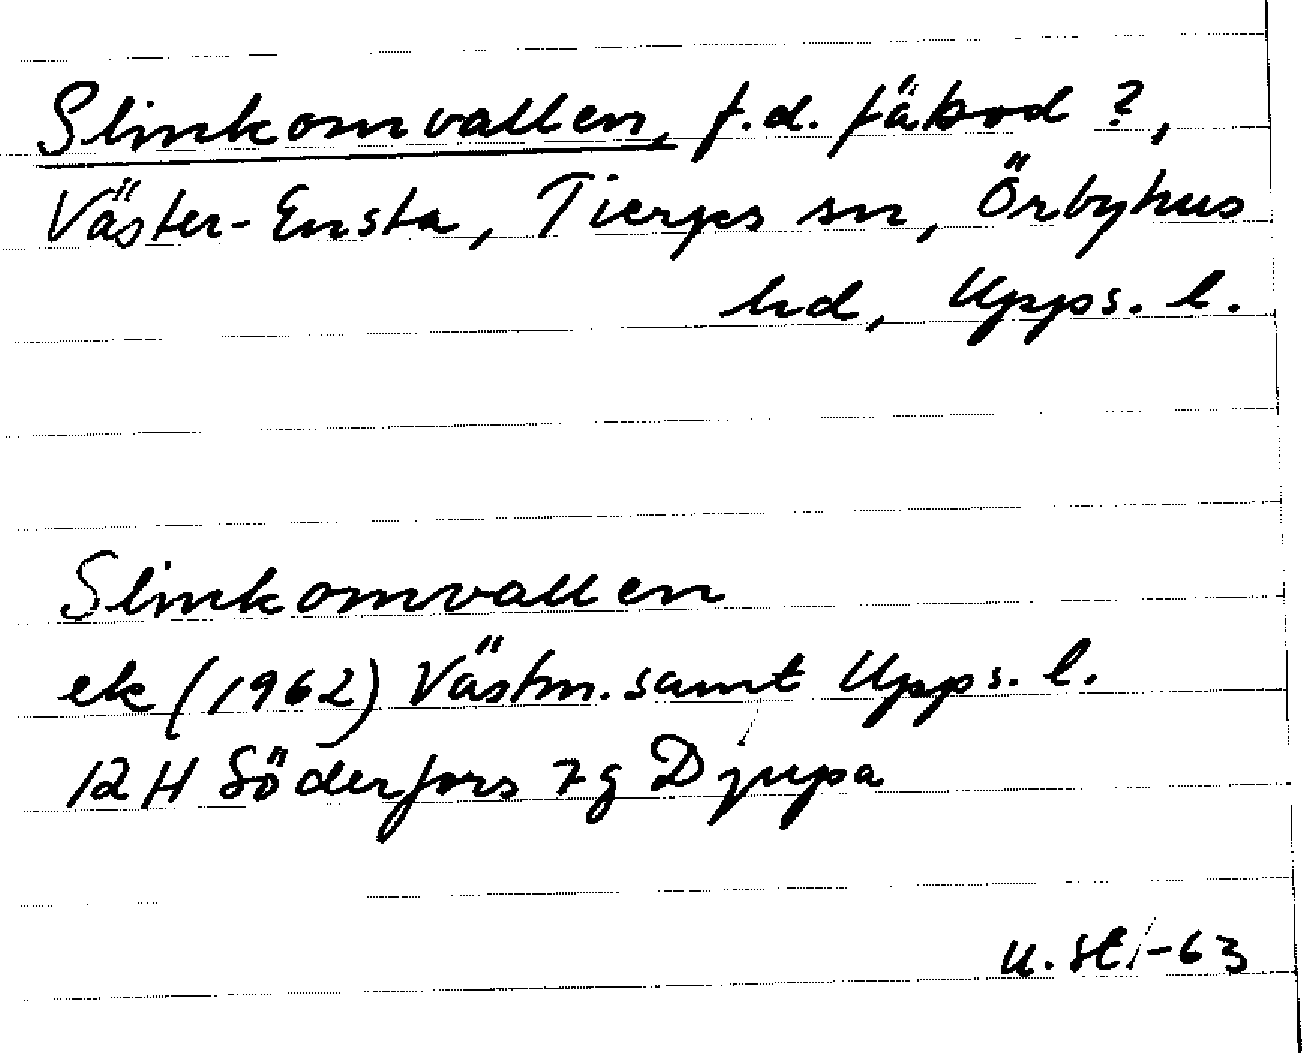 Slinkomvallen, f.d. fäbod ?,
Väster-Ensta, Tierps sn, Örbyhus
hd, Upps. l.
Slinkomvallen
ek (1962) Västm. samt Upps. l.
12 H Söderfors 7g Djupa
-63